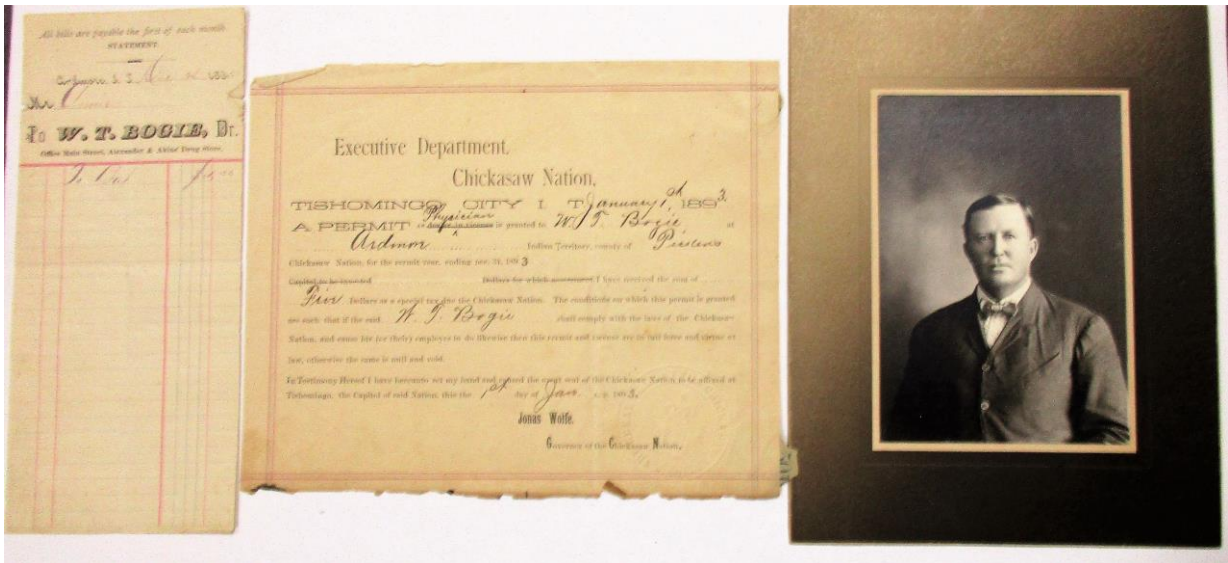 All bills are payable the first of each month
STATEMENT
Mr
To W. T. BOGIE, Dr.
Office Main Street, Alexander & Akins' Drug Store.
Executive Department,
Chickasaw Nation,
TISHOMINGO CITY I. T. January 1st, 1893.
Physician
A PERMIT is granted to W. T. Bogie at
Ardmore Indian Territory, county of Pickens
Chickasaw Nation, for the permit year, ending Dec. 31, 1893
Capital to be invested Dollars for which I have received the sum of
Five Dollars as a special tax due the Chickasaw Nation. The conditions on which this permit is granted
are such that if the said W. T. Bogie shall comply with the laws of the Chickasaw
Nation, and cause his (or their) employes to do likewise then this permit and license are in full force and virtue at
law, otherwise the same is null and void.
In Testimony Hereof I have hereunto set my hand and caused the great seal of the Chickasaw Nation to be affixed at
Tishomingo, the Capitol of said Nation, this the 1st day of Jan. A. D. 1893.
Jonas Wolfe.
Governor of the Chickasaw Nation.